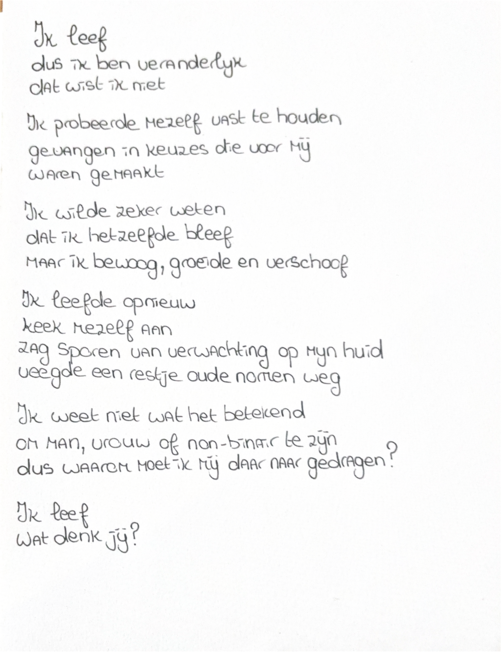 Ik leef
dus ik ben veranderlijk
dat wist ik niet
Ik probeerde mezelf vast te houden
gevangen in keuzes die voor mij
waren gemaakt
Ik wilde zeker weten
dat ik hetzelfde bleef
maar ik bewoog, groeide en verschoof
Ik leefde opnieuw
keek mezelf aan
zag sporen van verwachting op mijn huid
veegde een restje oude normen weg
Ik weet niet wat het betekend
om man, vrouw of non-binair te zijn
dus waarom moet ik mij daar naar gedragen?
Ik leef
wat denk jij?